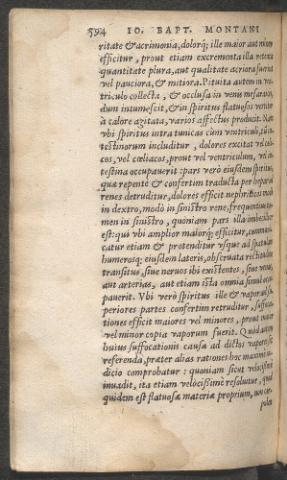 594 IO. BAPT. MONTANI
ritate & acrimonia, dolorq́; ille maior aut minor
efficitur, prout etiam excrementa illa retenta
quantitate plura, aut qualitate acriora fuerint
vel pauciora, & mitiora. Pituita autem in ventriculo
triculo collecta, & occlusa in venis mesaraicis,
dum intumescit, & in spiritus flatuosos vertitur
à calore agitata, varios affectus producit. Nam
vbi spiritus intra tunicas cùm ventriculi, tũ in
testinorum includitur, dolores excitat vel coli
cos, vel cœliacos, prout vel ventriculum, vel in
testina occupauerit: pars verò eiusdem spiritus
qua repentè & confertim traducta per hepar ad
renes detruditur, dolores efficit nephriticos modò
in dextro, modò in sinistro rene, frequentius ta
men in sinistro, quoniam pars illa imbecillior
est: qui vbi amplior maiorq́; efficitur, communi
catur etiam & protenditur vsque ad spatulas
humerosq́; eiusdem lateris, obseruata rectitudine
transitus, siue neruos ibi existentes, siue venas,
aut arterias, aut etiam ista omnia simul occu
pauerit. Vbi verò spiritus ille & vapor ad su
periores partes confertim retruditur, suffoca
tiones efficit maiores vel minores, prout maior
vel minor copia vaporum fuerit. Quòd autem
huius suffocationis causa ad dictos vapores sit
referenda, præter alias rationes hoc maximè iu
dicio comprobatur: quoniam sicut velocissimè
inuadit, ita etiam velocissimè resoluitur, quod
quidem est flatuosæ materiæ proprium, non cor-